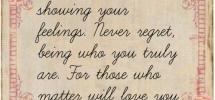 showing your
feelings. Never regret,
being who you truly
are. For those who
matter will love you